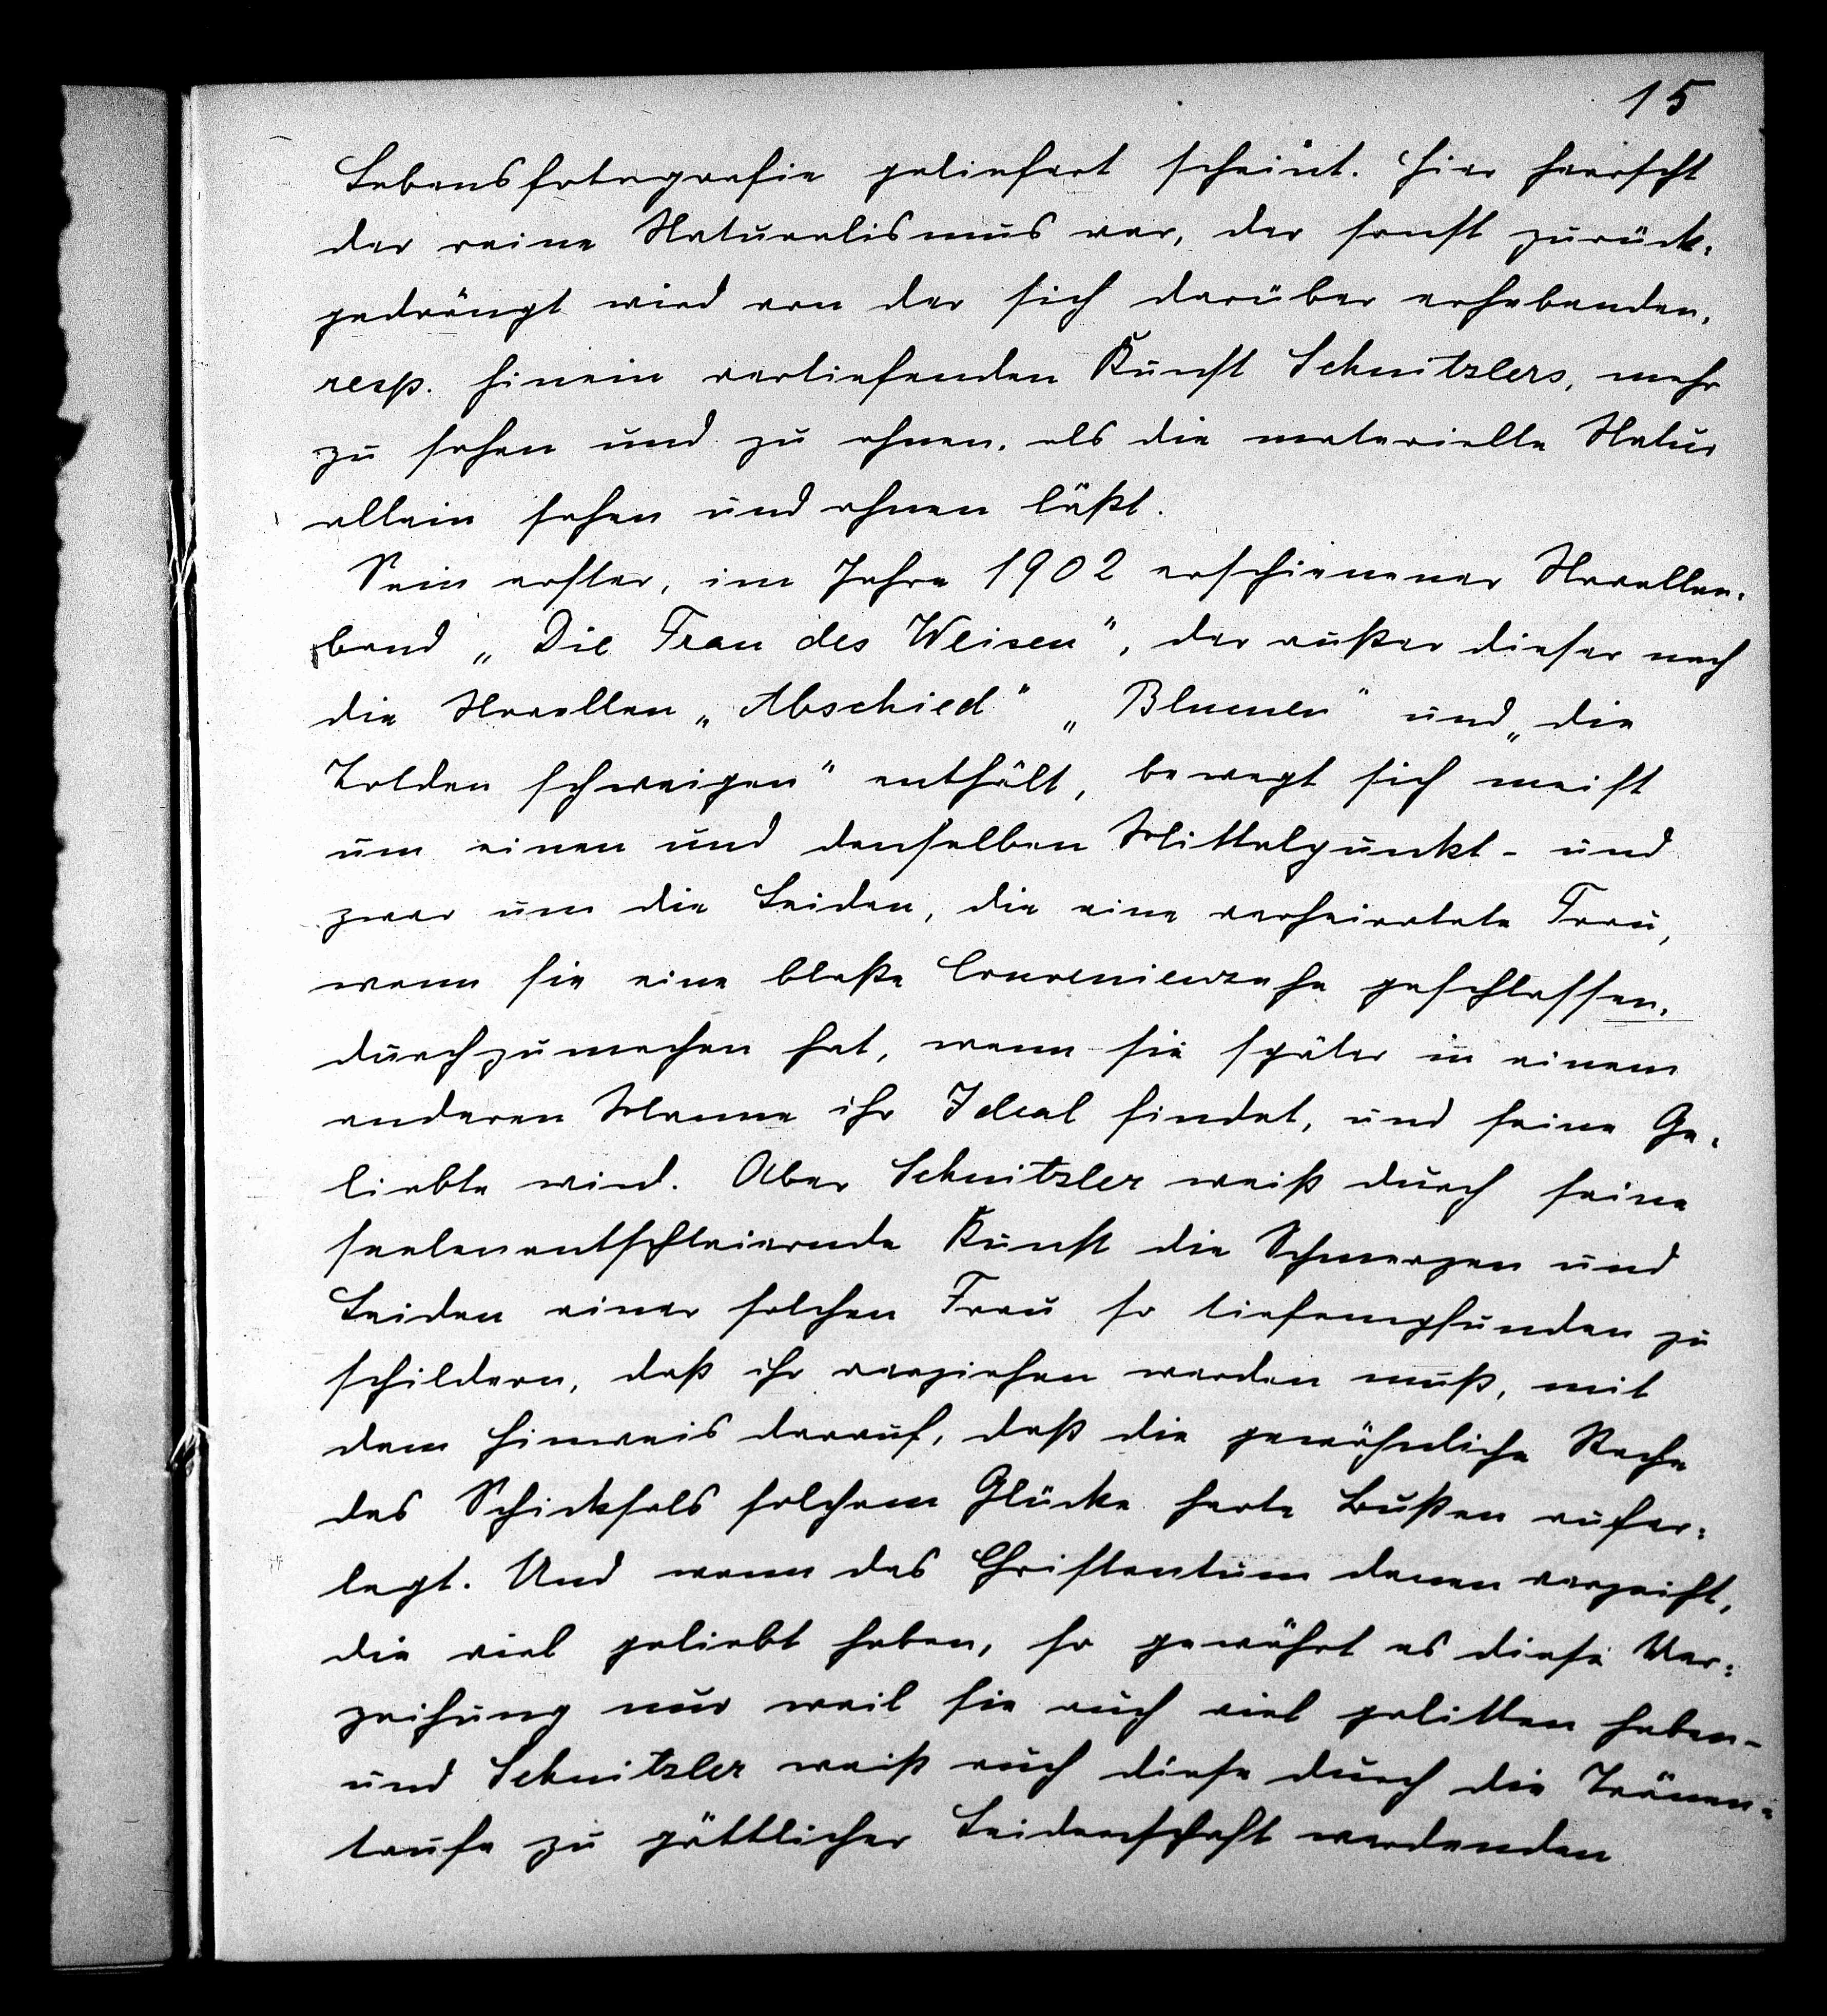 15
Lebensfotografie geliefert scheint. Hier herrscht
der reine Naturalismus vor, der sonst zurück-
gedrängt wird von der sich darüber erhebenden,
resp. hinein vertiefenden Kunst Schnitzlers, mehr
zu sehen und zu ahnen, als die materielle Natur
allein sehen und ahnen läßt.
Sein erster, im Jahre 1902 erschienener Novellen-
band „Die Frau des Weisen", der außer dieser noch
die Novellen „Abschied" „Blumen" und „die
Toten schweigen" enthält, bewegt sich meist
um einen und denselben Mittelpunkt - und
zwar um die Leiden, die eine verheiratete Frau,
wenn sie eine bloße Convenienzehe geschlossen,
durchzumachen hat, wenn sie später in einem
anderen Manne ihr Ideal findet, und seine Ge-
liebte wird. Aber Schnitzler weiß durch seine
seelenentschleiernde Kunst die Schmerzen und
Leiden einer solchen Frau so tiefempfunden zu
schildern, daß ihr verziehen werden muß, mit
dem Hinweis darauf, daß die gewöhnliche Rache
des Schicksals solchem Glücke harte Bußen aufer-
legt. Und wenn das Christentum denen verzeiht,
die viel geliebt haben, so gewährt es diese Ver-
zeihung nur weil sie auch viel gelitten haben -
und Schnitzler weiß auch diese durch die Tränen-
taufe zu göttlicher Leidenschaft werdenden